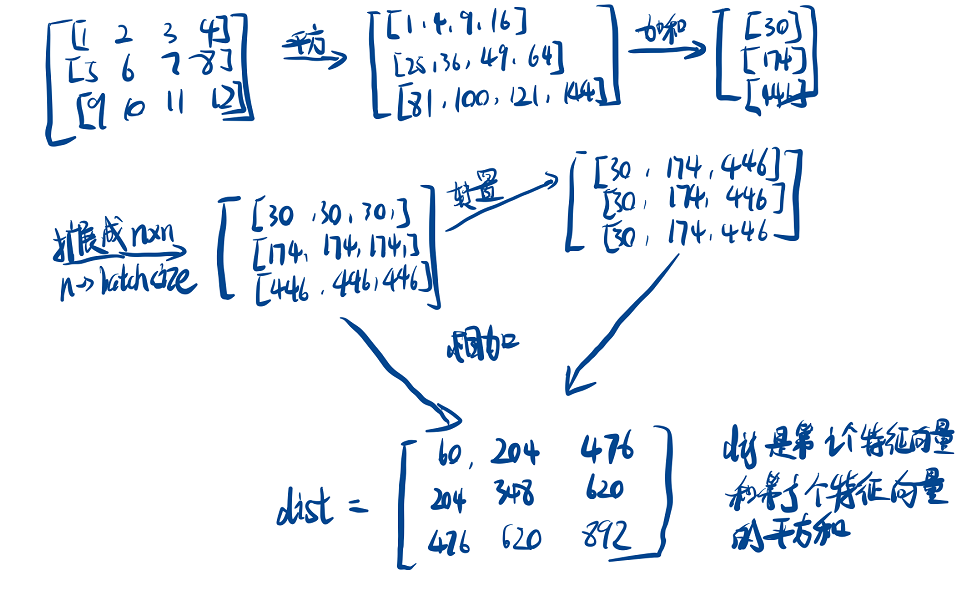 [1 2 3 4]
[5 6 7 8]
[9 10 11 12]
平方
[1, 4, 9, 16]
[25, 36, 49, 64]
[81, 100, 121, 144]
加和
[30]
[174]
[446]
扩展成nxn
n→batchsize
[30, 30, 30,]
[174, 174, 174,]
[446, 446, 446]
转置
[30, 174, 446]
[30, 174, 446]
[30, 174, 446
相加
dist =
60, 204 476
204 348 620
476 620 892
dij是第i个特征向量
和第j个特征向量
的平方和